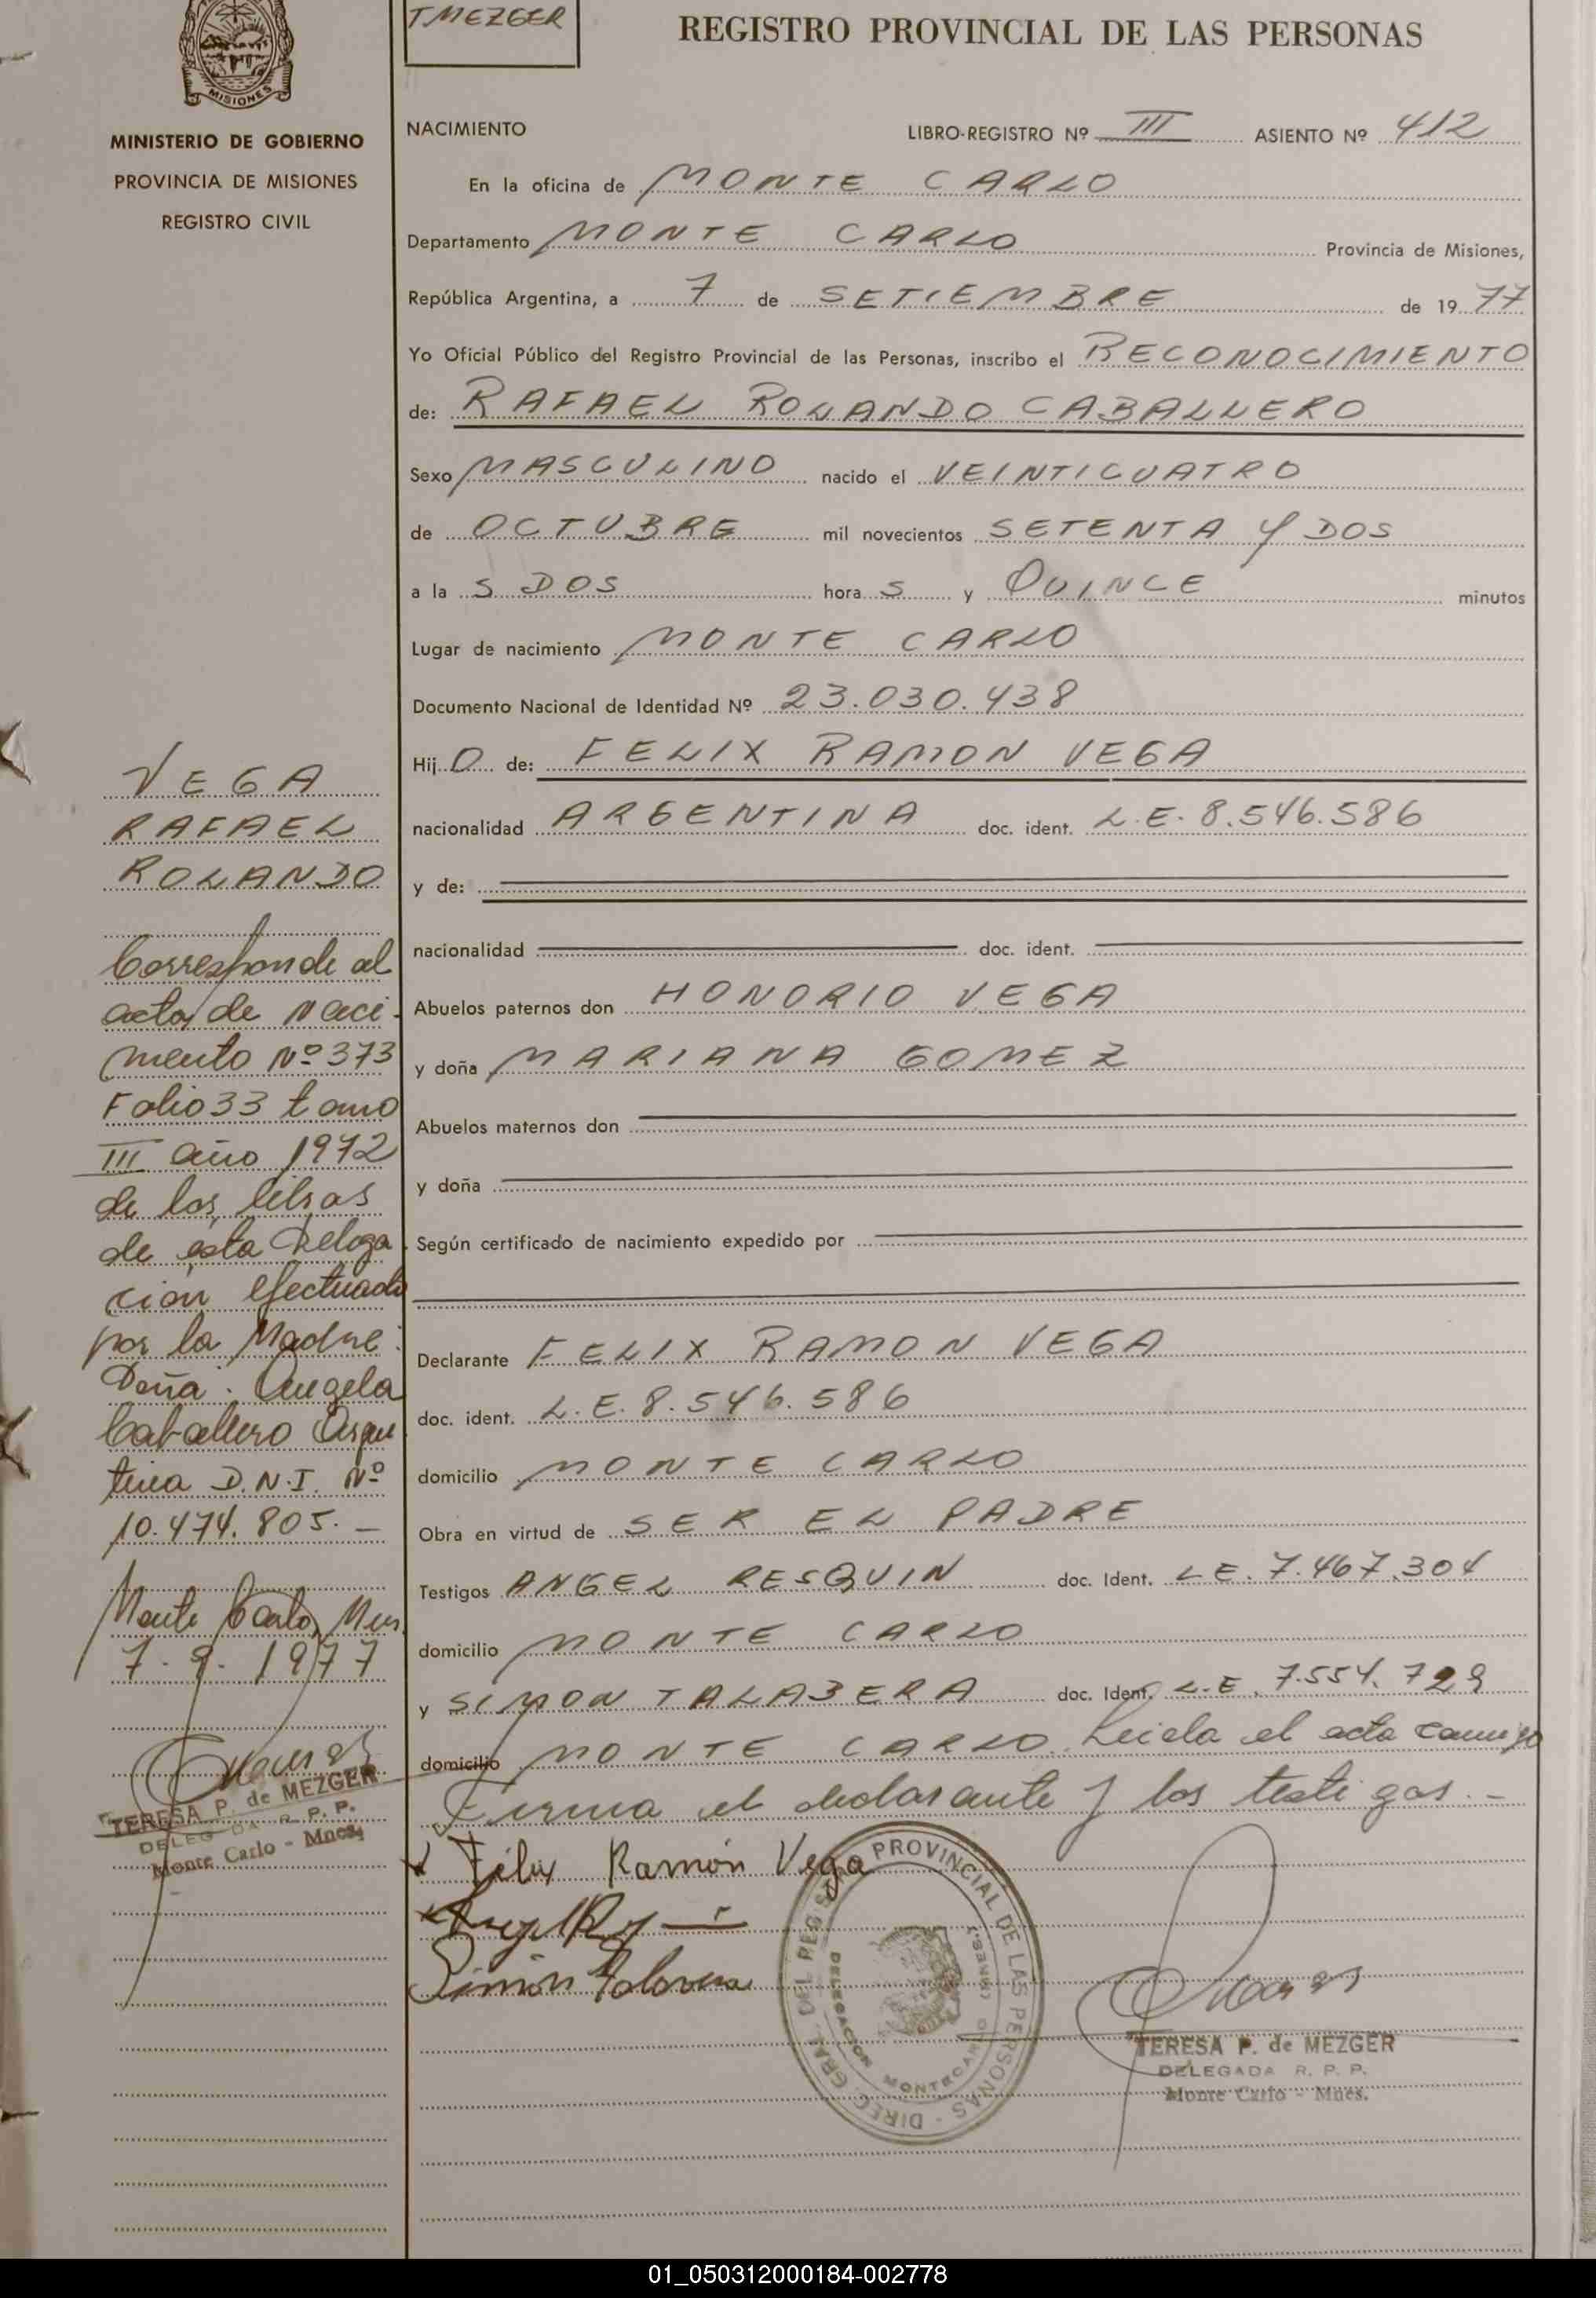 MISIONES
MINISTERIO DE GOBIERNO
PROVINCIA DE MISIONES
REGISTRO CIVIL
T. MEZGER
REGISTRO PROVINCIAL DE LAS PERSONAS
NACIMIENTO LIBRO-REGISTRO Nº III ASIENTO Nº 412
En la oficina de MONTE CARLO
Departamento MONTE CARLO Provincia de Misiones,
República Argentina, a 7 de SETIEMBRE de 1977
Yo Oficial Público del Registro Provincial de las Personas, inscribo el RECONOCIMIENTO
de: RAFAEL ROLANDO CABALLERO
Sexo MASCULINO nacido el VEINTICUATRO
de OCTUBRE mil novecientos SETENTA Y DOS
a la S DOS hora S y QUINCE minutos
Lugar de nacimiento MONTE CARLO
Documento Nacional de Identidad Nº 23.030.438
Hij O de: FELIX RAMON VEGA
nacionalidad ARGENTINA doc. ident. L.E. 8.546.586
y de:
nacionalidad doc. ident.
Abuelos paternos don HONORIO VEGA
y doña MARIANA GOMEZ
Abuelos maternos don
y doña
Según certificado de nacimiento expedido por
Declarante FELIX RAMON VEGA
doc. ident. L.E. 8.546.586
domicilio MONTE CARLO
Obra en virtud de SER EL PADRE
Testigos ANGEL RESQUIN doc. Ident. L E. 7.467.304
domicilio MONTE CARLO
y SIMON TALABERA doc. Ident. L.E. 7.554.729
domicilio MONTE CARLO. Leida el acta conmigo
Firma el declarante y los testigos. -
Félix Ramón Vega
Simón Talavera
DIREC. GRAL. DEL REGISTRO PROVINCIAL DE LAS PERSONAS
DELEGACION MONTECARLO (MNES.)
TERESA P. de MEZGER
DELEGADA R. P. P.
Monte Carlo - Mnes.
VEGA
RAFAEL
ROLANDO
Corresponde al
acta de naci-
miento Nº 373
Folio 33 tomo
III año 1972
de los libros
de ésta Delega
ción efectuada
por la Madre:
Doña: Angela
Caballero Argen
tina D.N.I. Nº
10.474.805. -
Monte Carlo, Mnes.
7-9-1977
TERESA P. de MEZGER
DELEGADA R. P. P.
Monte Carlo - Mnes.
01_050312000184-002778